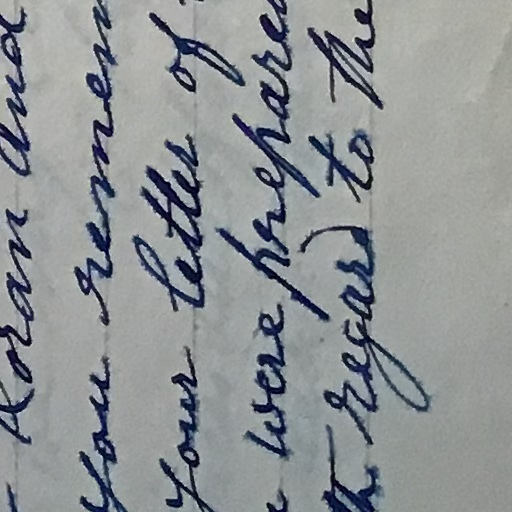 - Koran and
you remem
your letter of
were prepared
th regard to the